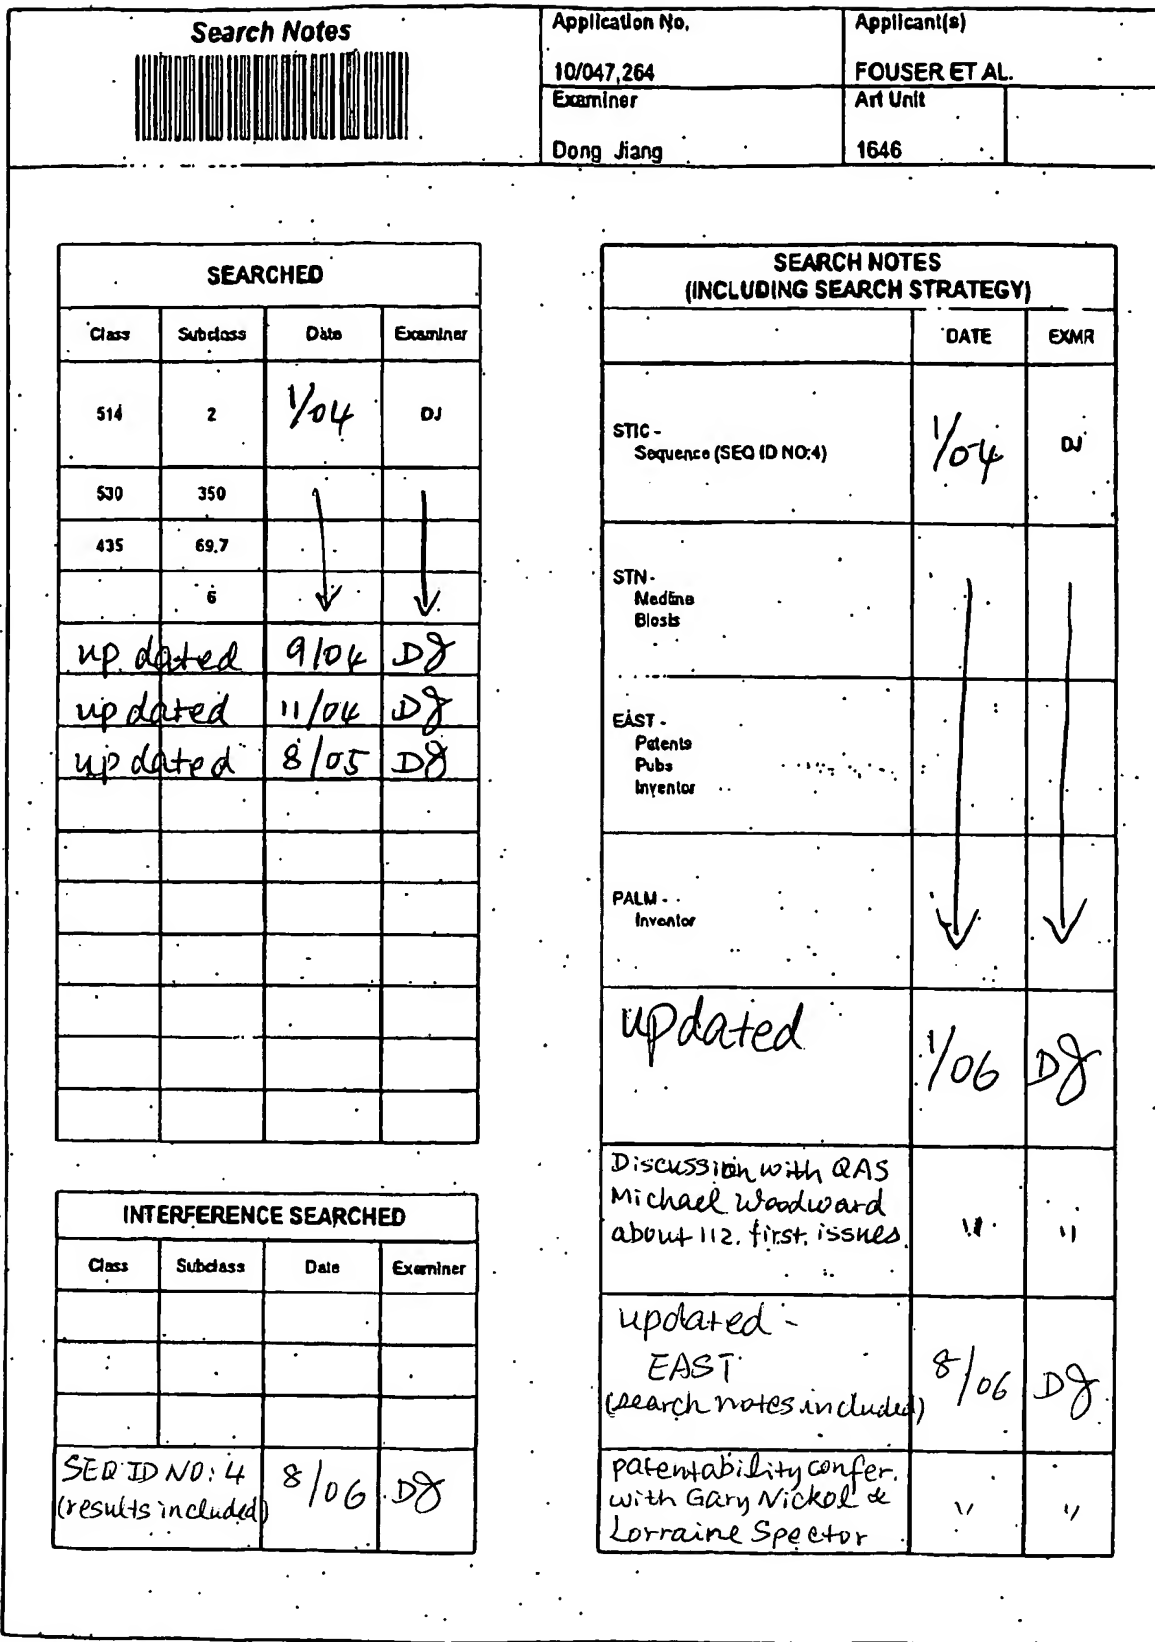 Search Notes
Application No.
10/047,264
Applicant(s)
FOUSER ET AL.
Examiner
Dong Jiang
Art Unit
1646
SEARCHED
Class Subclass Date Examiner
514 2 1/04 DJ
530 350
435 69.7
6
updated 9/04 DJ
updated 11/04 DJ
updated 8/05 DJ
INTERFERENCE SEARCHED
Class Subclass Date Examiner
SEQ ID NO: 4
(results included) 8/06 DJ
SEARCH NOTES
(INCLUDING SEARCH STRATEGY)
DATE EXMR
STIC -
Sequence (SEQ ID NO:4) 1/04 DJ
STN -
Medline
Biosis
EAST -
Patents
Pubs
Inventor
PALM -
Inventor
updated 1/06 DJ
Discussion with QAS
Michael Woodward
about 112. first. issues. " "
updated -
EAST
(search notes included) 8/06 DJ
patentability confer.
with Gary Nickol &
Lorraine Spector " "